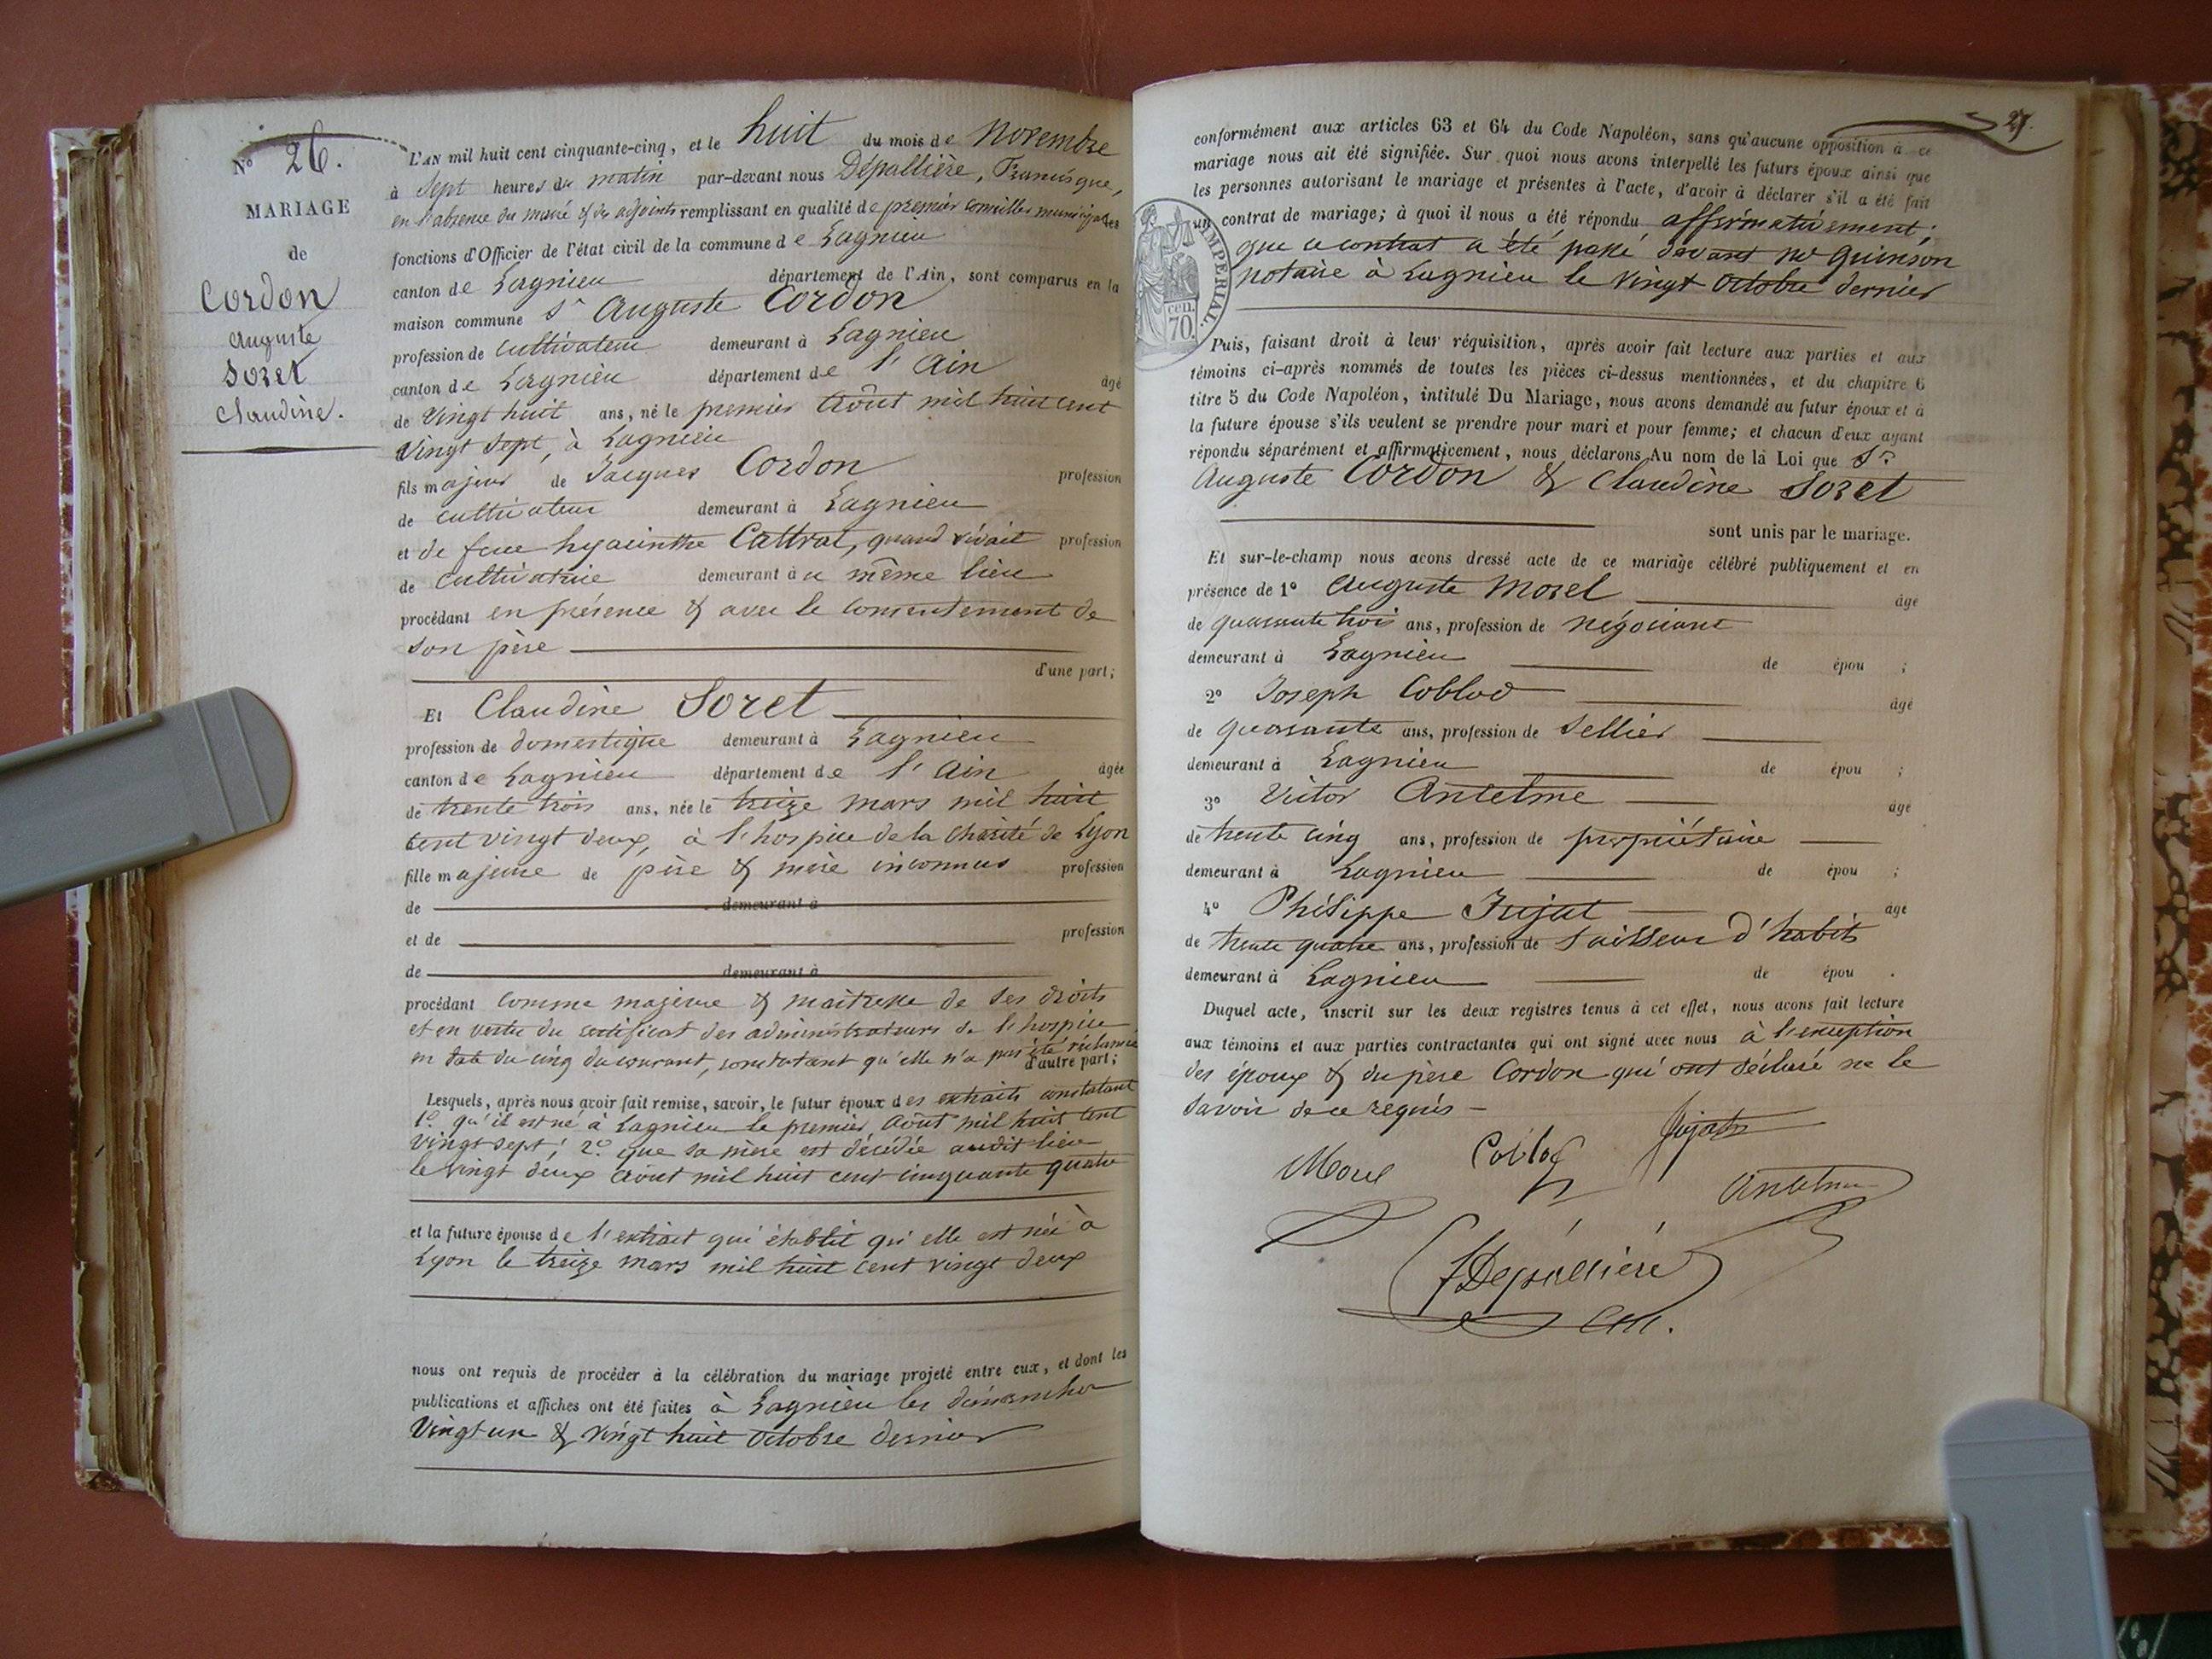 N° 26.
MARIAGE
de
Cordon
Auguste
Soret
Claudine.
L'AN mil huit cent cinquante-cinq, et le huit du mois de Novembre
à Sept heures du matin par-devant nous Dépallière, Francisque,
en l'absence du maire & des adjoints remplissant en qualité de premier conseiller municipal les
fonctions d'Officier de l'état civil de la commune de Lagnieu
canton de Lagnieu département de l'Ain, sont comparus en la
maison commune Sr Auguste Cordon
profession de cultivateur demeurant à Lagnieu
canton de Lagnieu département de l'Ain âgé
de vingt huit ans, né le premier Août mil huit cent
vingt sept, à Lagnieu
fils majeur de Jacques Cordon profession
de cultivateur demeurant à Lagnieu
et de feue hyacinthe Cattrat, quand vivait profession
de cultivatrice demeurant au même lieu
procédant en présence & avec le consentement de
son père
d'une part;
Et Claudine Soret
profession de domestique demeurant à Lagnieu
canton de Lagnieu département de l'Ain âgée
de trente trois ans, née le treize mars mil huit
cent vingt deux, à l'hospice de la Charité de Lyon
fille majeure de père & mère inconnus profession
de demeurant à
et de profession
de demeurant à
procédant comme majeure & maîtresse de ses droits
et en vertu du certificat des administrateurs de l'hospice
en date du cinq du courant, constatant qu'elle n'a pas été réclamée
d'autre part;
Lesquels, après nous avoir fait remise, savoir, le futur époux des extraits constatant
1° qu'il est né à Lagnieu le premier Août mil huit cent
vingt sept; 2° que sa mère est décédée audit lieu
le vingt deux Août mil huit cent cinquante quatre
et la future épouse de l'extrait qui établit qu'elle est née à
Lyon le treize mars mil huit cent vingt deux
nous ont requis de procéder à la célébration du mariage projeté entre eux, et dont les
publications et affiches ont été faites à Lagnieu les dimanches
vingt un & vingt huit Octobre dernier
27.
conformément aux articles 63 et 64 du Code Napoléon, sans qu'aucune opposition à ce
mariage nous ait été signifiée. Sur quoi nous avons interpellé les futurs époux ainsi que
les personnes autorisant le mariage et présentes à l'acte, d'avoir à déclarer s'il a été fait
un contrat de mariage; à quoi il nous a été répondu affirmativement;
que ce contrat a été passé devant Me Guinson
notaire à Lagnieu le vingt Octobre dernier
IMPERIAL.
cen.
70.
Puis, faisant droit à leur réquisition, après avoir fait lecture aux parties et aux
témoins ci-après nommés de toutes les pièces ci-dessus mentionnées, et du chapitre 6
titre 5 du Code Napoléon, intitulé Du Mariage, nous avons demandé au futur époux et à
la future épouse s'ils veulent se prendre pour mari et pour femme; et chacun d'eux ayant
répondu séparément et affirmativement, nous déclarons Au nom de la Loi que Sr
Auguste Cordon & Claudine Soret
sont unis par le mariage.
Et sur-le-champ nous avons dressé acte de ce mariage célébré publiquement et en
présence de 1° Auguste Morel âgé
de quarante trois ans, profession de négociant
demeurant à Lagnieu de épou ;
2° Joseph Coblod âgé
de quarante ans, profession de sellier
demeurant à Lagnieu de épou ;
3° Victor Antelme âgé
de trente cinq ans, profession de propriétaire
demeurant à Lagnieu de épou ;
4° Philippe Jujat âgé
de trente quatre ans, profession de tailleur d'habits
demeurant à Lagnieu de épou .
Duquel acte, inscrit sur les deux registres tenus à cet effet, nous avons fait lecture
aux témoins et aux parties contractantes qui ont signé avec nous à l'exception
des époux & du père Cordon qui ont déclaré ne le
savoir de ce requis
Morel Coblod Jujat
Antelme
f Depallière